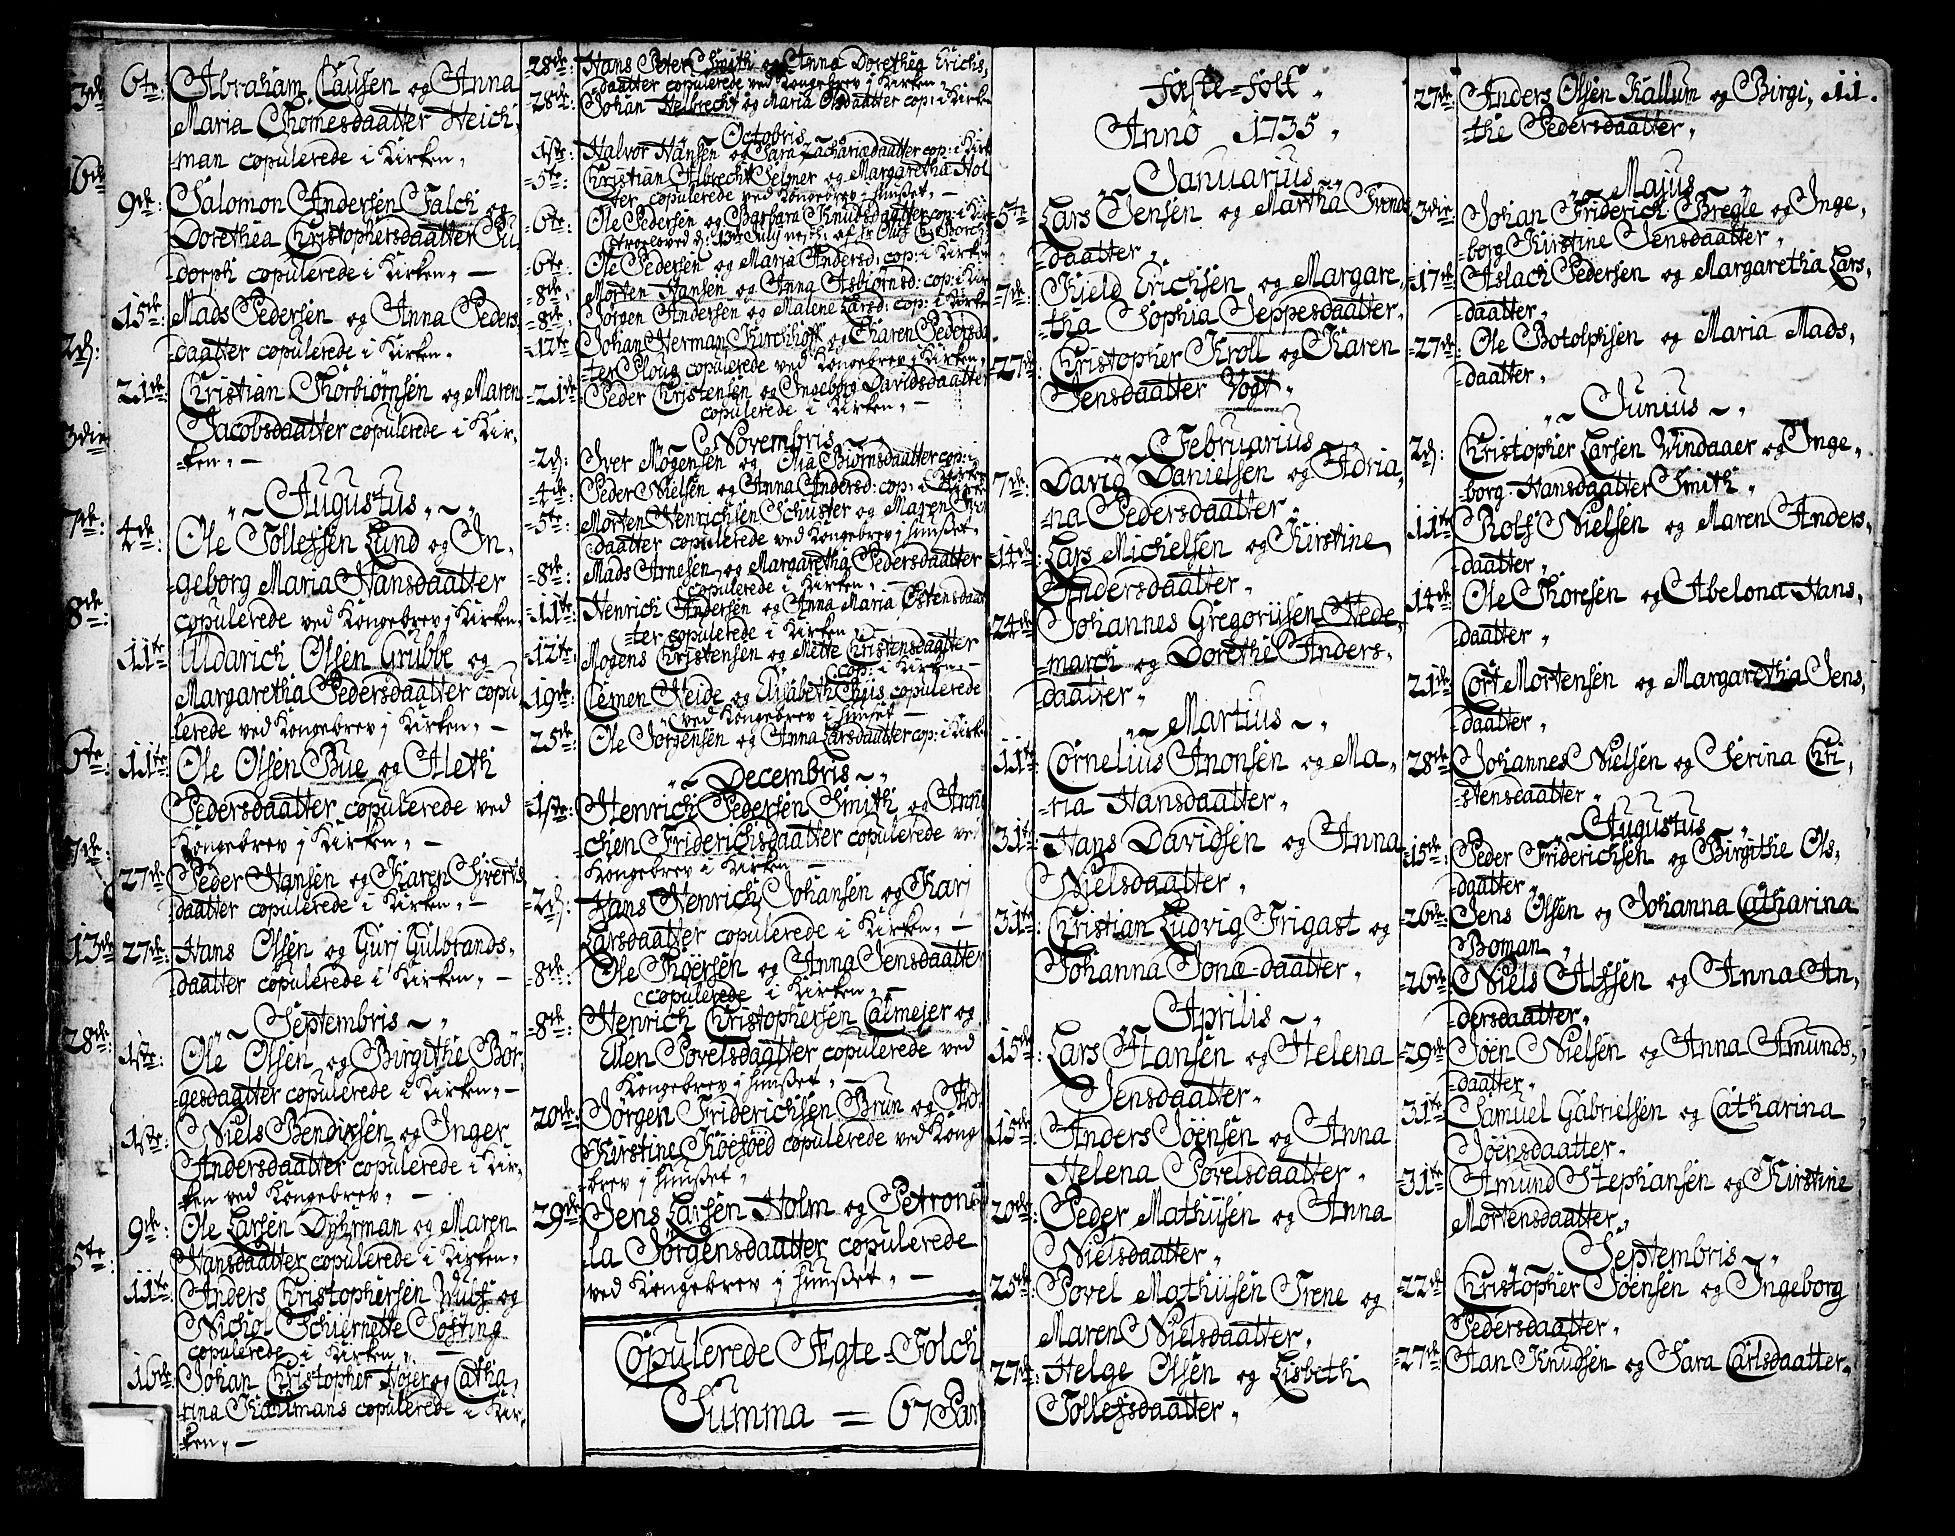 3de
6de
2d:
3die
7de:
8de:
6te
7de
13de
28de:
5te:
6te: Abraham Clausen og Anna
Maria Thomesdaatter Heich,
man copulerede i Kirken,
9de: Salomon Andersen Falch og
Dorethea Christophersdaatter
dorph copulerede i Kirken, —
15de: Mads Pedersen og Anna Peders
daatter copulerede i Kirken.
21de: Christian Thorbiørnsen og Maren
Jacobsdaatter copulerede i Kir,
ken, —
Augustus
4de: Ole Tollefsen Lund og In,
geborg Maria Hansdaatter
copulerede ved Kongebrev j Kirken,
11te: Uldarich Olsen Grubbe og
Margaretha Pedersdaatter copu
lerede ved Kongebrev j Kirken, —
11te: Ole Olsen Bue og Aleth
Pedersdaatter copulerede ved
Kongebrev j Kirken, —
27de: Peder Hansen og Karen Siverts
daatter copulerede i Kirken, —
27de: Hans Olsen og Gurj Gulbrands,
daatter copulerede i Kirken, —
Septembris
1ste: Ole Olsen og Birgithe Bør,
gesdaatter copulerede i Kirken, —
1ste: Niels Bendixsen og Inger
Andersdaatter copulerede i Kir,
ken ved Kongebrev, —
9de: Ole Larsen Dyhrman og Maren
Hansdaatter copulerede i Kirken,
11te: Anders Christophersen Wulf og
Nichol Schiernette Tosting
copulerede i Kirken, —
16de: Johan Christopher Høser og Catha,
rina Hartmans copulerede i Kir,
ken, —
28de: Hans Peter Smith og Anna Dorethea Erichs,
daatter copulerede ved Kongebrev j Kirken,
28de: Johan Helbrecht og Maria Olsdaatter cop: i Kirken
Octobris
1ste: Halvor Hansen og Sara Zachariædaatter cop: i Kirk
5te: Christian Albrecht Selmer og Margaretha Hol
ter, copulerede ved Kongebrev j Huuset, —
6te: Ole Pedersen og Barbara Knudsdaatter cop: i Kir
6te: Ole Pedersen og Maria Andersd: cop: i Kirken
8de: Morten Hansen og Anna Asbiørnsd: cop: i Kir
8de: Jørgen Andersen og Malene Larsd: cop: i Kirke
12te: Johan Herman Kirchhoff og Karen Pedersda
ter Ploug copulerede ved Kongebrev j Kirken,
21de: Peder Christensen og Ingeborg Davidsdaatter
copulerede i Kirken, —
Novembris
2d: Iver Mogensen og Olia Biørnsdaatter cop: i
4de: Peder Nielsen og Anna Andersd: cop: i Kirken
5te: Morten Henrichsen Schuster og Maren
daatter copulerede ved Kongebrev j Huuset,
8de: Mads Arnesen og Margaretha Pedersdaatter
copulerede i Kirken, —
11te: Henrich Andersen og Anna Maria Østensdaat
ter copulerede i Kirken, —
12te: Mogens Christensen og Mette Christensdaatter
cop: i Kirken, —
19de: Clemen Heide og Elisabeth Theis copulerede
ved Kongebrev j Huuset —
25de: Ole Jørgensen og Anna Larsdaatter cop: i Kirke
Decembris
1ste: Henrich Pedersen Smith og Ann
chen Friderichsdaatter copulerede ved
Kongebrev i Kirken, —
2d: Hans Henrich Johansen og Karj
Larsdaatter copulerede i Kirken, —
8de: Ole Thoersen og Anna Jensdaatter
copulerede i Kirken, —
8de: Henrich Christophersen Calmejer og
Ellen Povelsdaatter copulerede ved
Kongebrev j Huuset, —
20de: Jørgen Friderichsen Brun og
Kirstine Køesøed copulerede ved Kong
brev j Huuset,
29de: Jens Larsen Holm og Petronel
la Jørgensdaatter copulerede
ved Kongebrev j Huuset, —
Copulerede Ægte-Folch
Summa = 67 Par
Feste-Folk,
Anno 1735,
Januarius
5te: Lars Jensen og Martha Svends
daatter,
7de: Kield Erichsen og Margare,
tha Sophia Jeppesdaatter,
27de: Christopher Kroll og Karen
Jensdaatter Vogt,
Februarius
7de: David Danielsen og Adria,
na Pedersdaatter,
14de: Lars Michelsen og Kirstine
Andersdaatter,
24de: Johannes Gregoriisen Hede,
march og Dorethe Anders,
daatter,
Martius
11te: Cornelius Anonsen og Ma,
ria Hansdaatter,
31te: Hans Davidsen og Anna
Nielsdaatter,
31te: Christian Ludvig Frigast og
Johanna Jonæ-daatter,
Aprilis
15de: Lars Hansen og Helena
Jensdaatter,
15de: Anders Jøensen og Anna
Helena Povelsdaatter,
20de: Peder Mathiisen og Anna
Nielsdaatter,
25de: Povel Mathiisen Trene og
Maren Nielsdaatter,
27de: Helge Olsen og Lisbeth
Tollefsdaatter,
27de: Anders Olsen Kallum og Birgi, 11.
the Pedersdaatter,
Majus
3die: Johan Friderich Bregle og Inge,
borg Kirstine Jensdaatter,
17de: Aslach Pedersen og Margaretha Lars,
daatter,
27de: Ole Botolphsen og Maria Mads,
daatter,
Junius
2d: Christopher Larsen Vindaaer og Inge,
borg Hansdaatter Smith,
11te: Rolf Nielsen og Maren Anders,
daatter,
14de: Ole Thoresen og Abelona Hans,
daatter,
21de: Cort Mortensen og Margaretha Jens,
daatter,
28de: Johannes Nielsen og Serina Chri,
stensdaatter,
Augustus
15de: Peder Friderichsen og Birgithe Ols,
daatter,
26de: Jens Olsen og Johanna Catharina
Boman,
26de: Niels Alfsen og Anna An,
dersdaatter,
29de: Jøen Nielsen og Anna Amunds,
daatter,
31te: Samuel Gabrielsen og Catharina
Jøensdaatter,
31te: Amund Stephansen og Kirstine
Mortensdaatter,
Septembris
22de: Christopher Jøensen og Ingeborg
Pedersdaatter,
27de: Aan Knudsen og Sara Carlsdaatter,